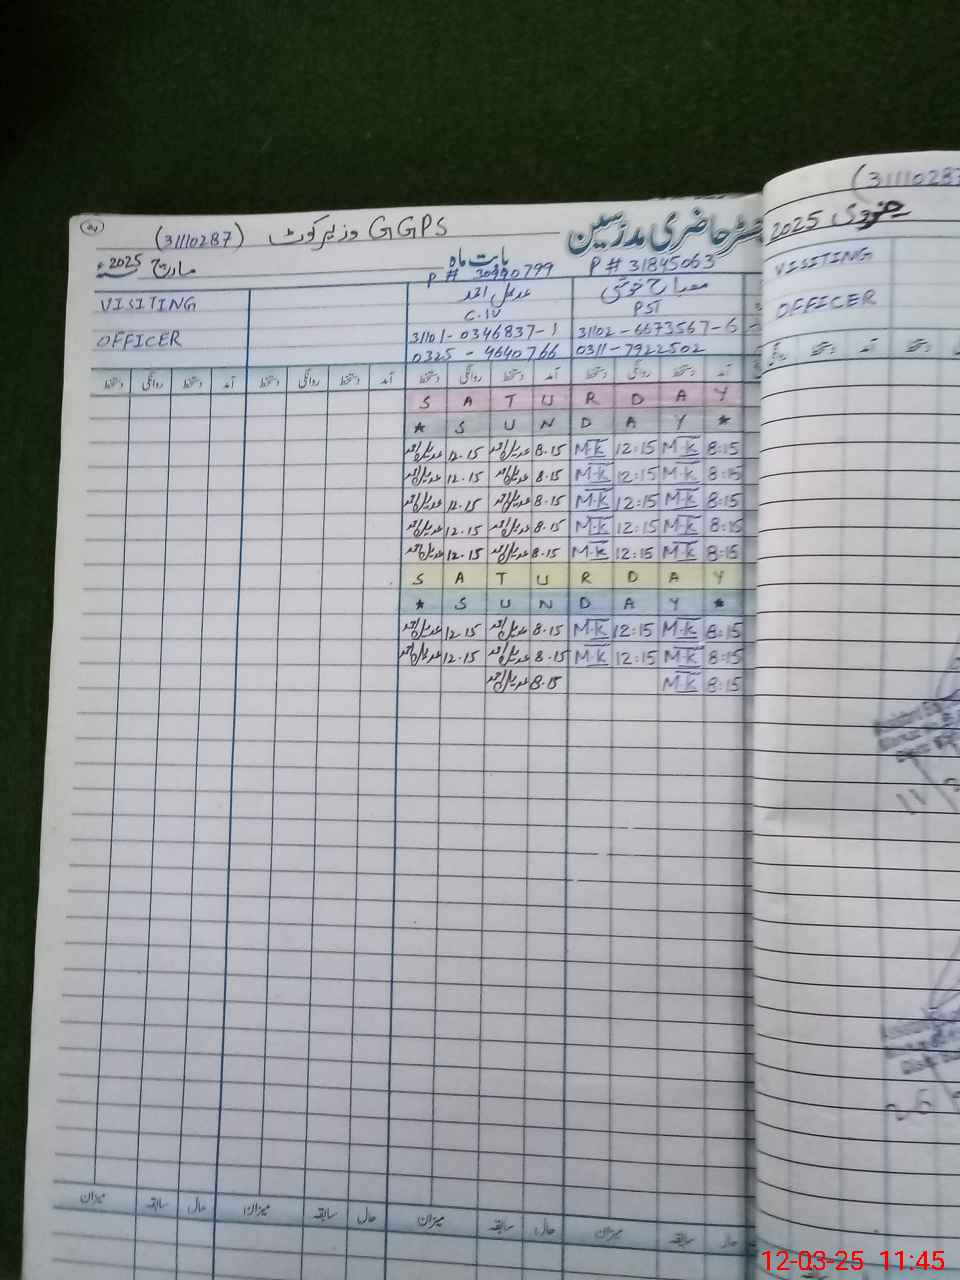 GGPS وزیر کوٹ (31110287)
رجسٹر حاضری مدرسین
بابت ماہ
مارچ 2025ء
P # 31845063
VISITING
OFFICER
مصباح
PST
31102-6673567-6
0311-7922502
عدیل احمد
31101-0346837-1
0325-4640766
آمد دستخط روانگی دستخط آمد دستخط روانگی دستخط آمد دستخط روانگی دستخط آمد دستخط روانگی دستخط
S A T U R D A Y
* S U N D A Y *
8:15 M.K 12:15 M.K 8.15 عدیل احمد 12.15 عدیل احمد
8:15 M.K 12:15 M.K 8.15 عدیل احمد 12.15 عدیل احمد
8:15 M.K 12:15 M.K 8.15 عدیل احمد 12.15 عدیل احمد
8:15 M.K 12:15 M.K 8.15 عدیل احمد 12.15 عدیل احمد
8:15 M.K 12:15 M.K 8.15 عدیل احمد 12.15 عدیل احمد
S A T U R D A Y
* S U N D A Y *
8:15 M.K 12:15 M.K 8.15 عدیل احمد 12.15 عدیل احمد
8:15 M.K 12:15 M.K 8.15 عدیل احمد 12.15 عدیل احمد
8:15 M.K 8.15 عدیل احمد
حال سابقہ میزان حال سابقہ میزان حال سابقہ میزان حال سابقہ میزان
(3111028
جنوری 2025
VISITING
OFFICER
آمد دستخط روانگی
12-03-25 11:45